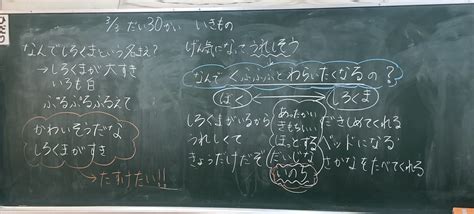 3/3 だい30かい いきもの
なんでしろくまという名まえ?
→しろくまが大すき
いろも白
ぶるぶるふるえて
かわいそうだな
しろくまがすき
→たすけたい!!
げん気になってうれしそう
なんでくふふふとわらいたくなるの?
ぼく
しろくま
しろくまがいるから
うれしくて
きょうだけだぞ
あったかい
きもちいい
ほっとする
だいじな
いのち
だきしめてくれる
ベッドになる
さかなをたべてくれる